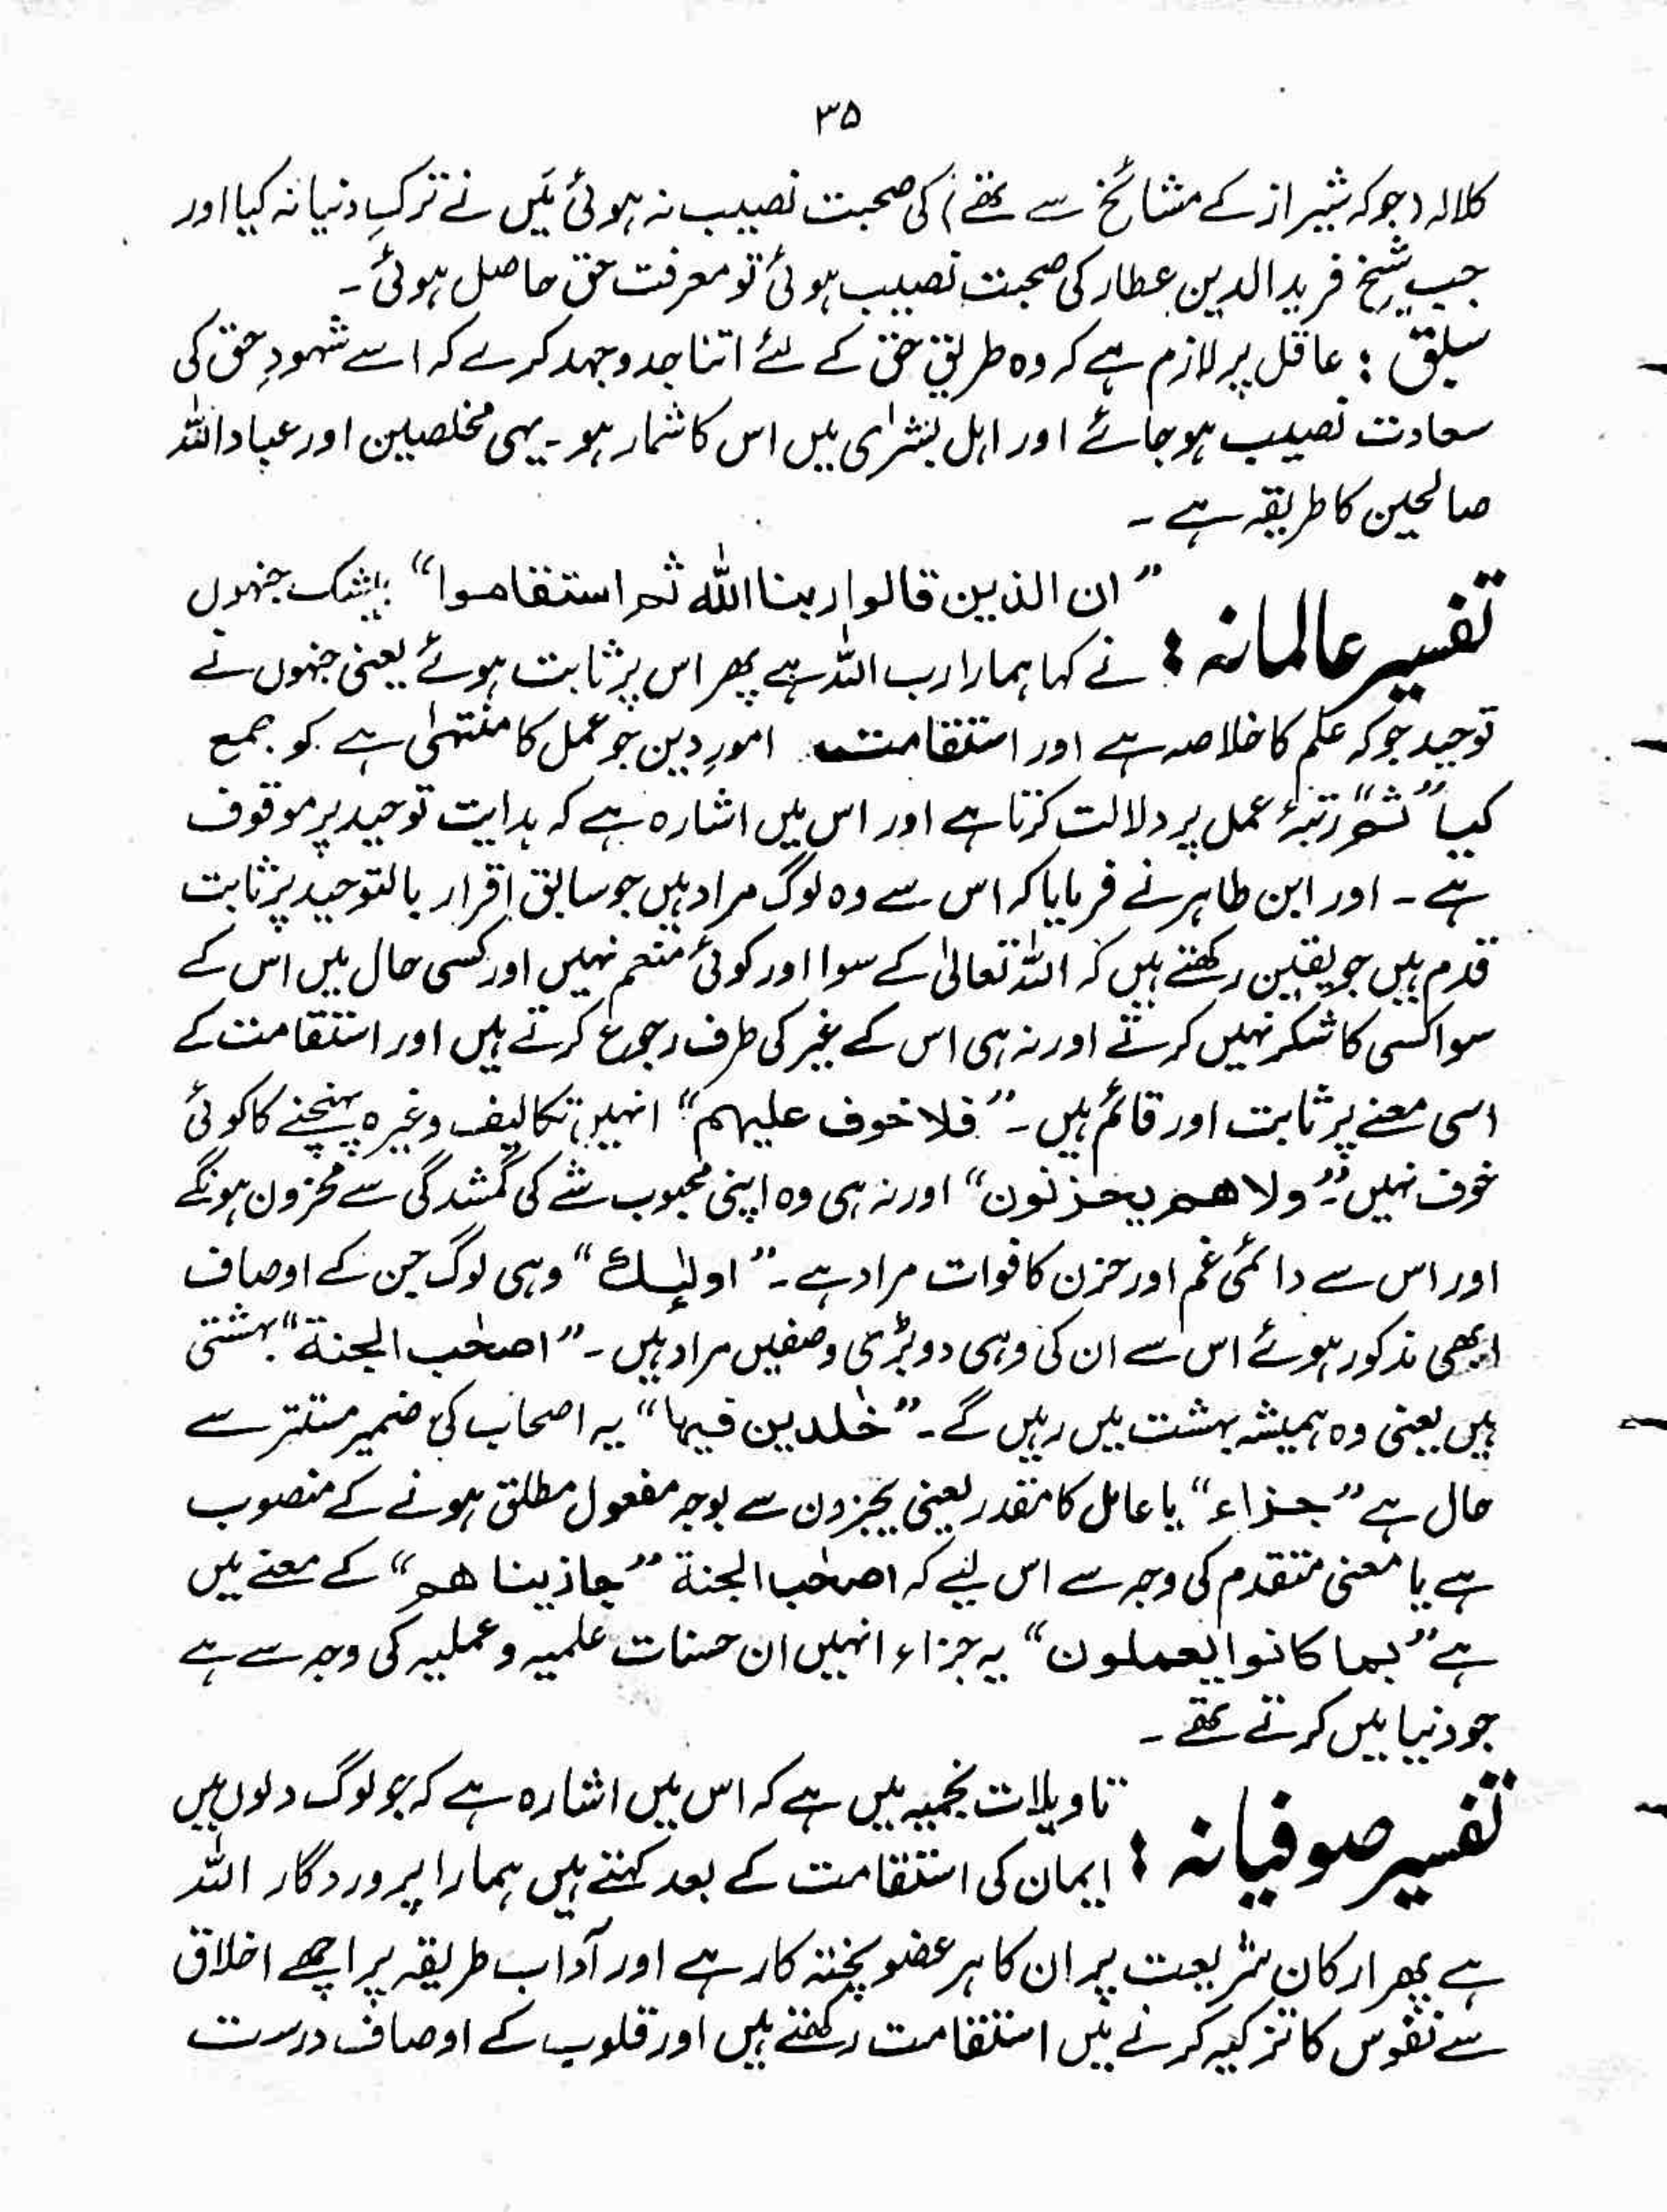 ۳۵
کلالہ (جو کہ شیراز کے مشائخ سے تھے) کی صحبت نصیب نہ ہوئی میں نے ترکِ دنیا نہ کیا اور
جب شیخ فرید الدین عطار کی صحبت نصیب ہوئی تو معرفت حق حاصل ہوئی۔
سبق : عاقل پر لازم ہے کہ وہ طریقِ حق کے لئے اتنا جد وجہد کرے کہ اسے شہودِ حق کی
سعادت نصیب ہو جائے اور اہل بشرٰی میں اس کا شمار ہو۔ یہی مخلصین اور عباد اللہ
صالحین کا طریقہ ہے۔
تفسیر عالمانہ : ”ان الذین قالوا ربنا اللہ ثم استقاموا“ بیشک جنہوں
نے کہا ہمارا رب اللہ ہے پھر اس پر ثابت ہوئے یعنی جنہوں نے
توحید جو کہ علم کا خلاصہ ہے اور استقامت امورِ دین جو عمل کا منتہٰی ہے کو جمع
کیا ”ثم“ رتبۂ عمل پر دلالت کرتا ہے اور اس میں اشارہ ہے کہ ہدایت توحید پر موقوف
ہے۔ اور ابن طاہر نے فرمایا کہ اس سے وہ لوگ مراد ہیں جو سابق اقرار بالتوحید پر ثابت
قدم ہیں جو یقین رکھتے ہیں کہ اللہ تعالیٰ کے سوا اور کوئی منعم نہیں اور کسی حال میں اس کے
سوا کسی کا شکر نہیں کرتے اور نہ ہی اس کے غیر کی طرف رجوع کرتے ہیں اور استقامت کے
اسی معنے پر ثابت اور قائم ہیں۔ ”فلا خوف علیہم“ انہیں تکالیف وغیرہ پہنچنے کا کوئی
خوف نہیں۔ ”ولا ھم یحزنون“ اور نہ ہی وہ اپنی محبوب شے کی گمشدگی سے محزون ہونگے
اور اس سے دائمی غم اور حزن کا فوات مراد ہے۔ ”اولٰئک“ وہی لوگ جن کے اوصاف
ابھی مذکور ہوئے اس سے ان کی وہی دو بڑی وصفیں مراد ہیں۔ ”اصحٰب الجنة“ بہشتی
ہیں یعنی وہ ہمیشہ بہشت میں رہیں گے۔ ”خٰلدین فیہا“ یہ اصحاب کی ضمیر مستتر سے
حال ہے ”جزاء“ یا عامل کا مقدر یعنی یجزون سے بوجہ مفعول مطلق ہونے کے منصوب
ہے یا معنی متقدم کی وجہ سے اس لیے کہ اصحٰب الجنة ”جاذینا ھم“ کے معنے میں
ہے ”بما کانوا یعملون“ یہ جزاء انہیں ان حسنات علمیہ و عملیہ کی وجہ سے ہے
جو دنیا میں کرتے تھے۔
تفسیر صوفیانہ : تاویلات نجمیہ میں ہے کہ اس میں اشارہ ہے کہ جو لوگ دلوں میں
ایمان کی استقامت کے بعد کہتے ہیں ہمارا پروردگار اللہ
ہے پھر ارکان شریعت پر ان کا ہر عضو پختہ کار ہے اور آداب طریقہ پر اچھے اخلاق
سے نفوس کا تزکیہ کرنے میں استقامت رکھتے ہیں اور قلوب کے اوصاف درست